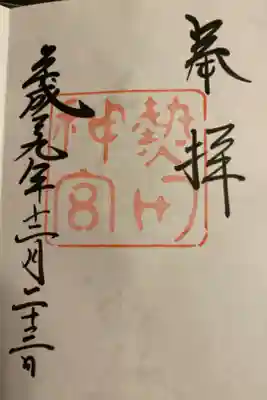 奉拝
熱田
神宮
平成元年十二月二十三日